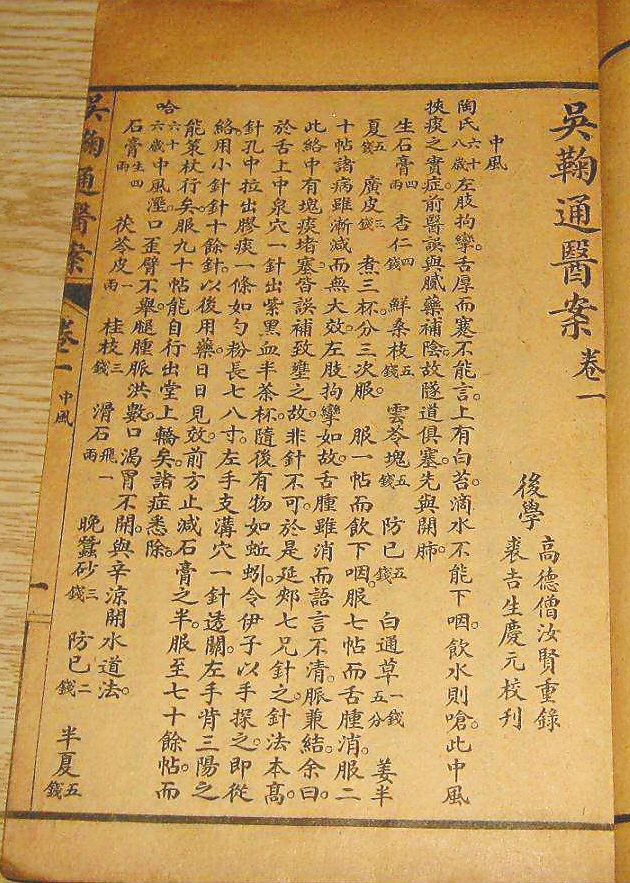 吳鞠通醫案 卷一
後學 高德僧汝賢重錄
裘吉生慶元校刊
中風
陶氏 六十八歲 左肢拘攣。舌厚而蹇不能言。上有白苔。滴水不能下咽。飲水則嗆。此中風
挾痰之實症。前醫誤與膩藥補陰。故隧道俱塞。先與開肺。
生石膏 四兩 杏仁 四錢 鮮桑枝 五錢 雲苓塊 五錢 防已 五錢 白通草 一錢五分 姜半
夏 五錢 廣皮 三錢 煮三杯。分三次服。 服一帖而飲下咽。服七帖而舌腫消。服二
十帖。諸病雖漸減。而無大效。左肢拘攣如故。舌腫雖消。而語言不清。脈兼結。余曰。
此絡中有塊痰堵塞。皆誤補致壅之故。非針不可。於是延郟七兄針之。針法本高。
於舌上中泉穴一針。出紫黑血半茶杯。隨後有物如蚯蚓。令伊子以手探之。即從
針孔中拉出膠痰一條。如勺粉。長七八寸。左手支溝穴一針透關。左手背三陽之
絡。用小針針十餘針。以後用藥。日日見效。前方止減石膏之半。服至七十餘帖。而
能策杖行矣。服九十帖。能自行出堂上轎矣。諸症悉除。
哈 六十六歲 中風溼。口歪臂不舉。腿腫脈洪數。口渴胃不開。與辛涼開水道法。
石膏 生四兩 茯苓皮 一兩 桂枝 三錢 滑石 飛一兩 晚蠶砂 三錢 防已 二錢 半夏 五錢
吳鞠通醫案 卷一 中風 一